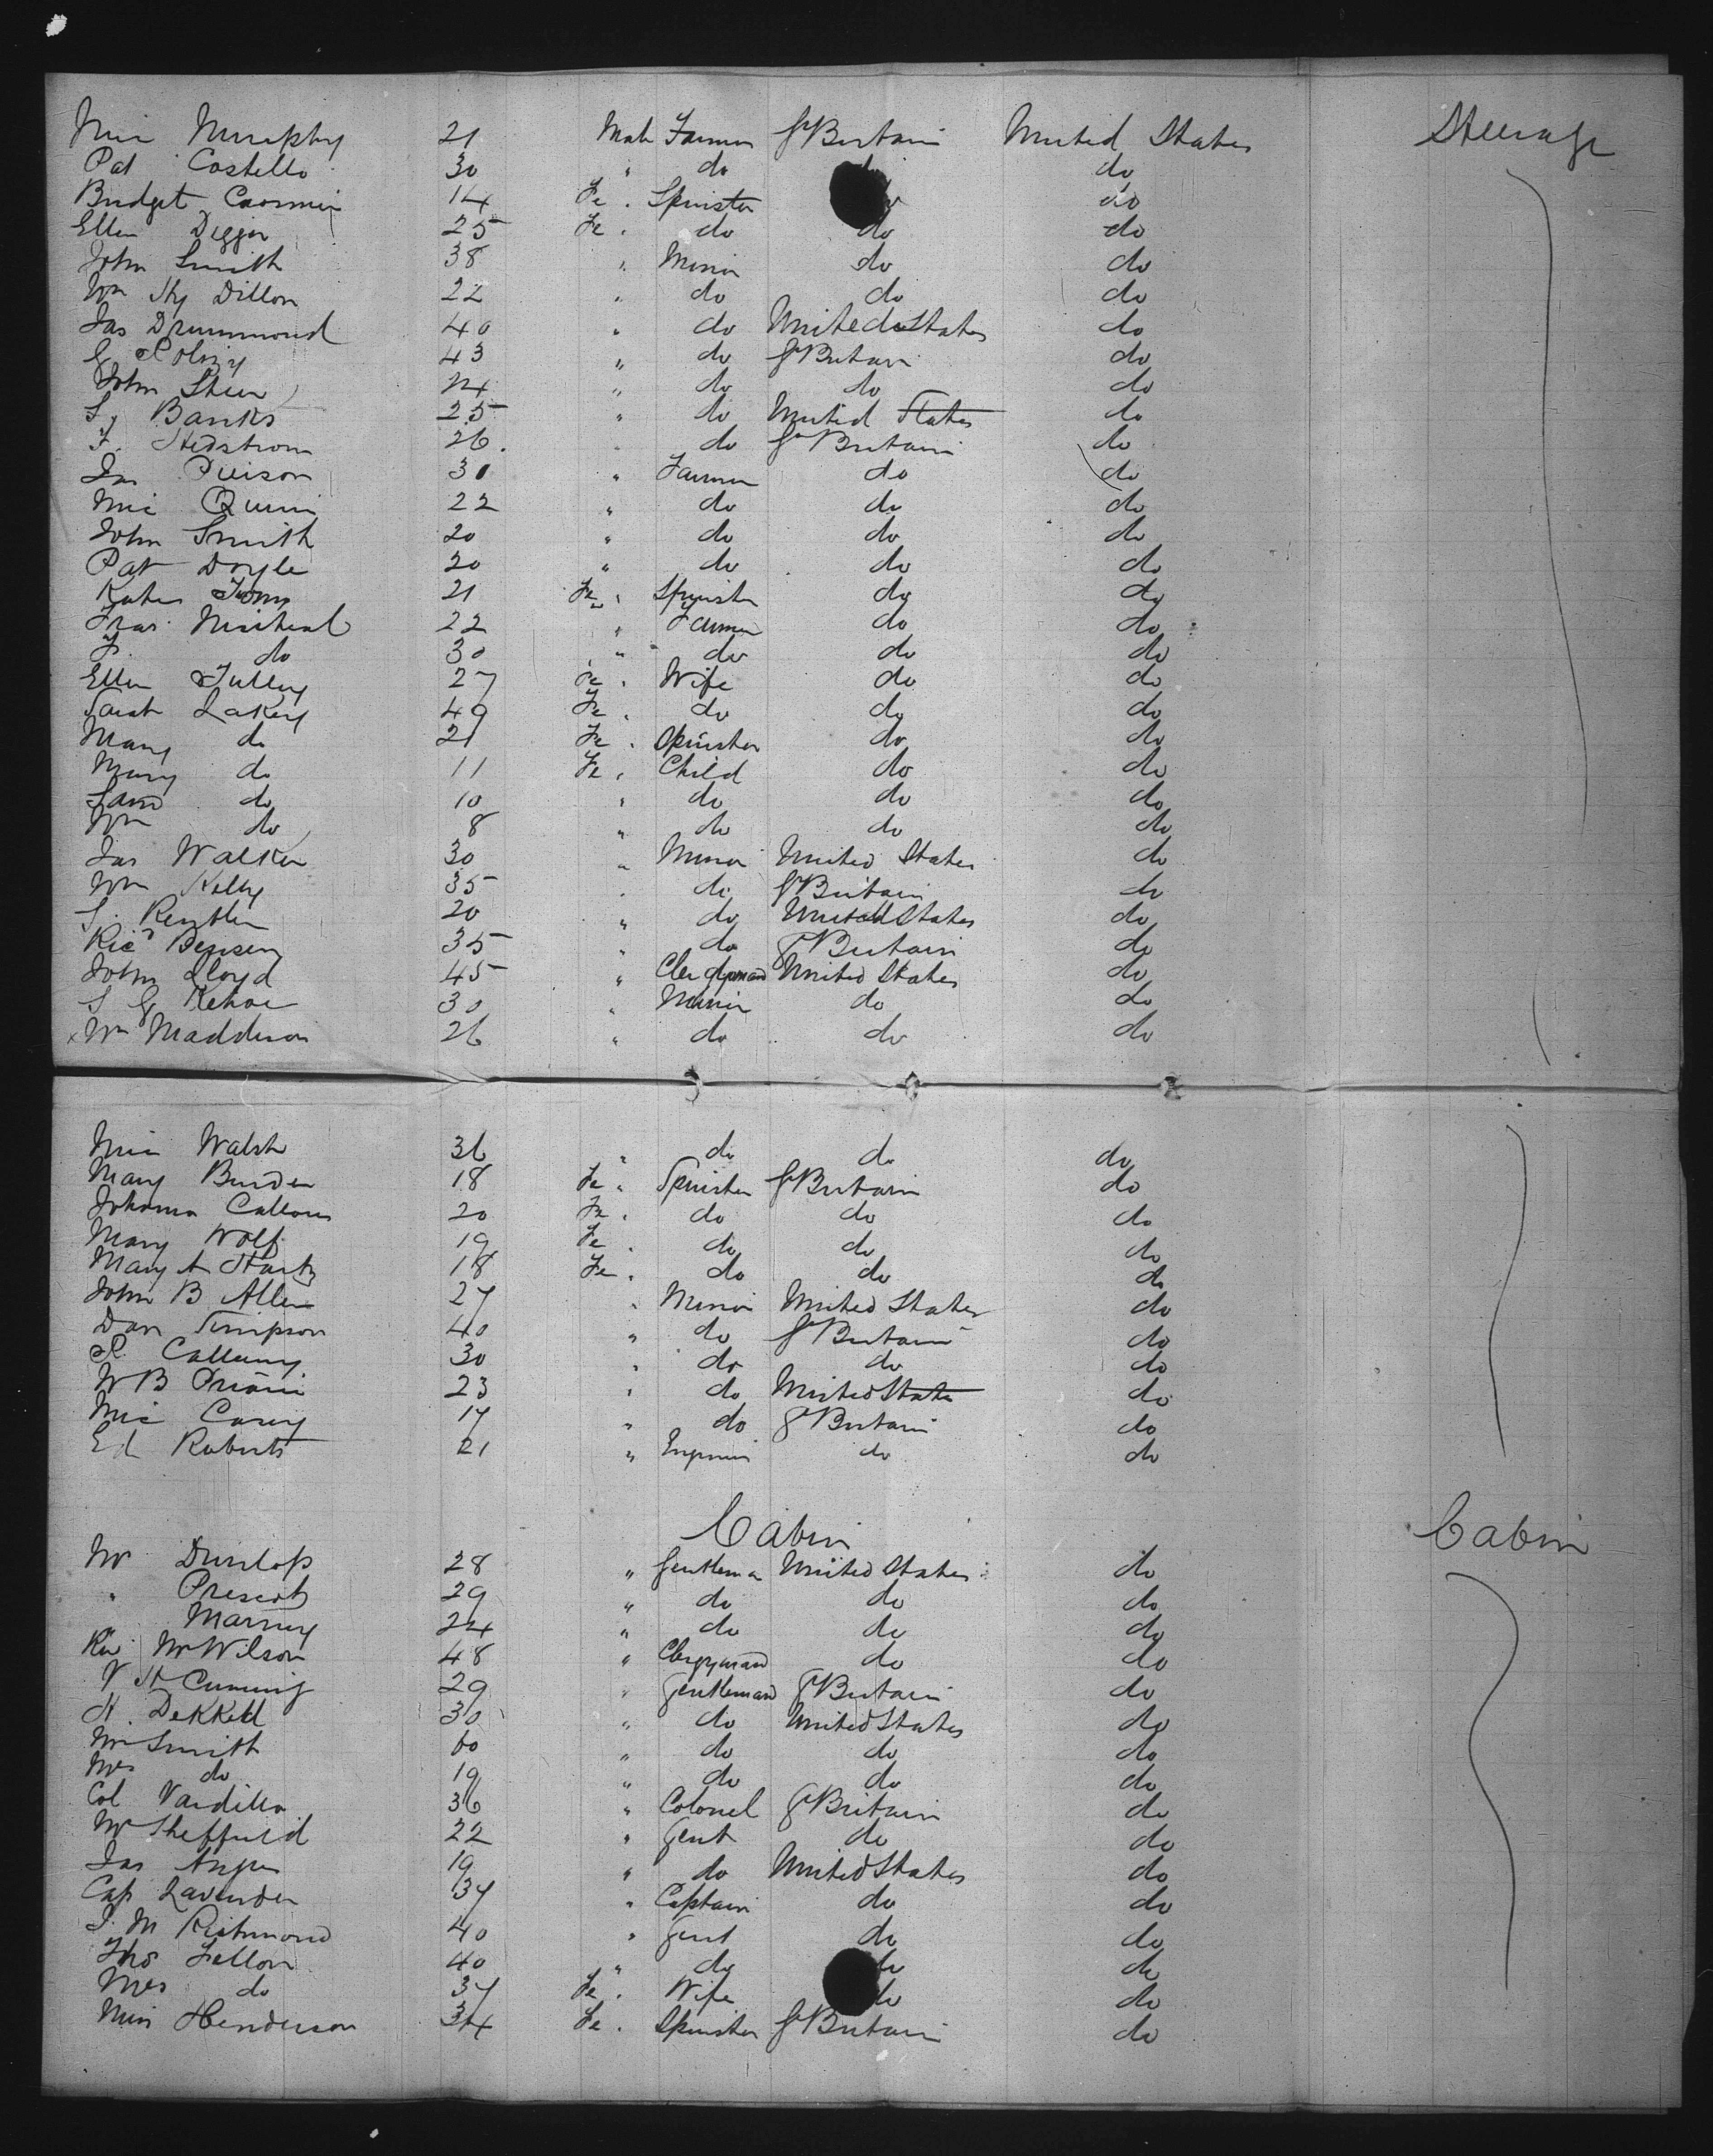 Mic Murphy 21 Male Farmer Gt Britain United States Steerage
Pat Costello 30 " do do do
Bridget 14 Fe " Spinster do do
Ellen 25 Fe " do do do
John Smith 38 " Miner do do
Wm Hy Dillon 22 " do do do
Jas Drummond 40 " do United States do
G 43 " do Gt Britain do
John 24 " do do do
Banks 25 " do United States do
F. Hedstrom 26. " do Gt Britain do
Jas 30 " Farmer do do
Mic Quinn 22 " do do do
John Smith 20 " do do do
Pat Doyle 20 " do do do
Kate 21 Fe " Spinster do do
Fras 22 " Farmer do do
do 30 " do do do
Ellen Tulley 27 Fe " Wife do do
Sarah Lakey 49 Fe " do do do
Mary do 21 Fe " Spinster do do
Mary do 11 Fe " Child do do
Saml do 10 " do do do
Wm do 8 " do do do
Jas Walker 30 " Miner United States do
Wm Kelly 35 " do Gt Britain do
20 " do United States do
Ricd 35 " do Gt Britain do
John Lloyd 45 " Clergyman United States do
S G Kehoe 30 " Miner do do
x Wm Maddison 26 " do do do
Mic Walsh 36 " do do do
Mary Burden 18 Fe " Spinster Gt Britain do
Johanna 20 Fe " do do do
Mary Wolf 19 Fe " do do do
Mary A 18 Fe " do do do
John B Allen 27 " Miner United States do
Dan Simpson 40 " do Gt Britain do
30 " do do do
W B 23 " do United States do
Mic Carey 17 " do Gt Britain do
Ed Roberts 21 " do do
Cabin Cabin
Mr Dunlop 28 " Gentleman United States do
" Prescot 29 " do do do
" 24 " do do do
Rev Mr Wilson 48 " Clergyman do do
V H Cumming 29 " Gentleman Gt Britain do
H. Dekkell 30 " do United States do
Mr Smith 60 " do do do
Mrs do 19 " do do do
Col Vardilla 36 " Colonel Gt Britain do
Mr Sheffield 22 " Gent do do
Jas Angus 19 " do United States do
Cap Lavender 37 " Captain do do
J. M Richmond 40 " Gent do do
Thos Fellon 40 " do do do
Mrs do 37 Fe " Wife do do
Miss Henderson 34 Fe " Spinster Gt Britain do